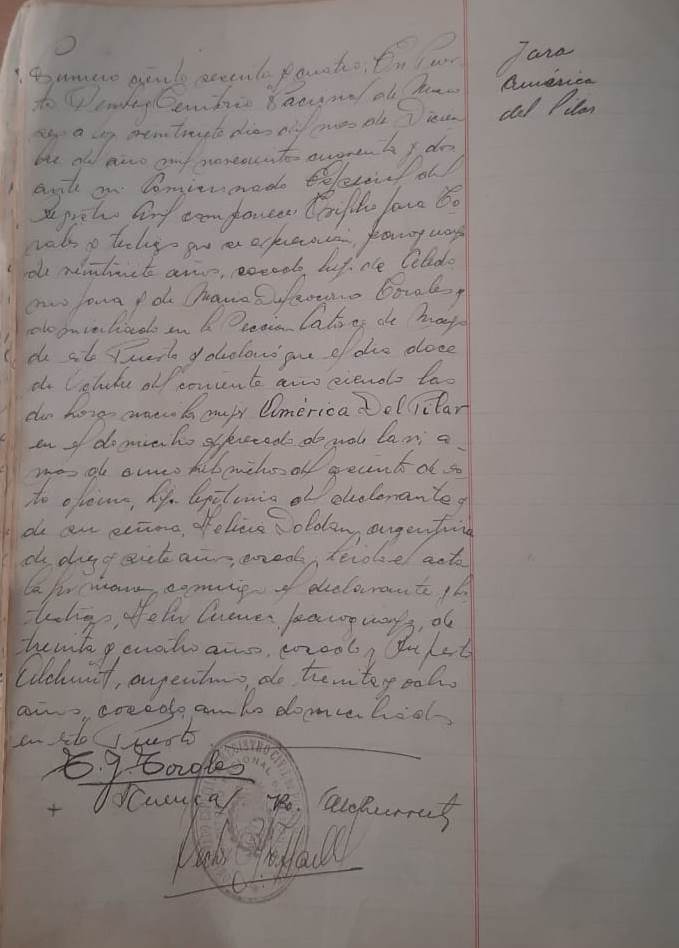 Jara
América
del Pilar
Numero ciento sesenta y cuatro. En Puer-
to Territorio Nacional de Misio
a los veintisiete dias del mes de Diciem
bre de año mil novecientos cuarenta y dos
ante mi Comisionado Especial del
Registro Civil comparece Jara Co
rales y testigos que se expresarán, paraguayo
de veintisiete años, casado, hijo de Celedo
nio Jara y de Maria Corales y
domiciliado en la Seccion Catorce de Mayo
de este Puerto y declaró que el dia doce
de Octubre del corriente año siendo las
dos horas nació la mujer América Del Pilar
en el domicilio expresado donde la vi, a
mas de cinco kilometros del asiento de es
ta oficina, hija legitima del declarante y
de su señora, Felicia Roldan, argentina
de diez y siete años, casada, leida el acta
la firmaron conmigo el declarante y los
testigos, Felix Cuenca, paraguayo, de
treinta y cuatro años, casado y Ruperto
argentino, de treinta y ocho
años, casado, ambos domiciliados
en este Puerto
Corales
Cuenca Ro.
REGISTRO CIVIL